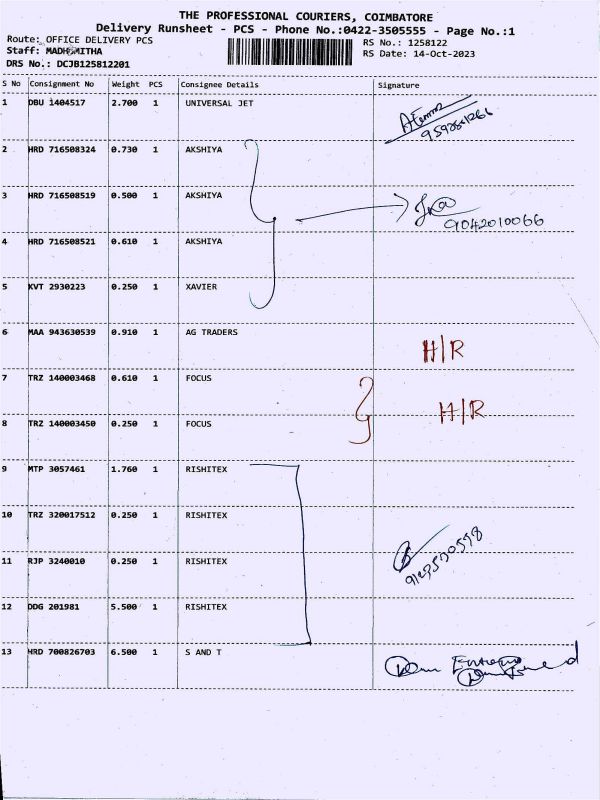 THE PROFESSIONAL COURIERS, COIMBATORE
Delivery Runsheet - PCS - Phone No.:0422-3505555 - Page No.:1
Route: OFFICE DELIVERY PCS
RS No.: 1258122
Staff: MADHUMITHA
RS Date: 14-Oct-2023
DRS No.: DCJB125812201
S No Consignment No Weight PCS Consignee Details Signature
1 DBU 1404517 2.700 1 UNIVERSAL JET
2 HRD 716508324 0.730 1 AKSHIYA
3 HRD 716508519 0.500 1 AKSHIYA
9042010066
4 HRD 716508521 0.610 1 AKSHIYA
5 KVT 2930223 0.250 1 XAVIER
6 MAA 943630539 0.910 1 AG TRADERS
H/R
7 TRZ 140003468 0.610 1 FOCUS
H/R
8 TRZ 140003450 0.250 1 FOCUS
9 MTP 3057461 1.760 1 RISHITEX
10 TRZ 320017512 0.250 1 RISHITEX
11 RJP 3240010 0.250 1 RISHITEX
12 DDG 201981 5.500 1 RISHITEX
13 HRD 700826703 6.500 1 S AND T